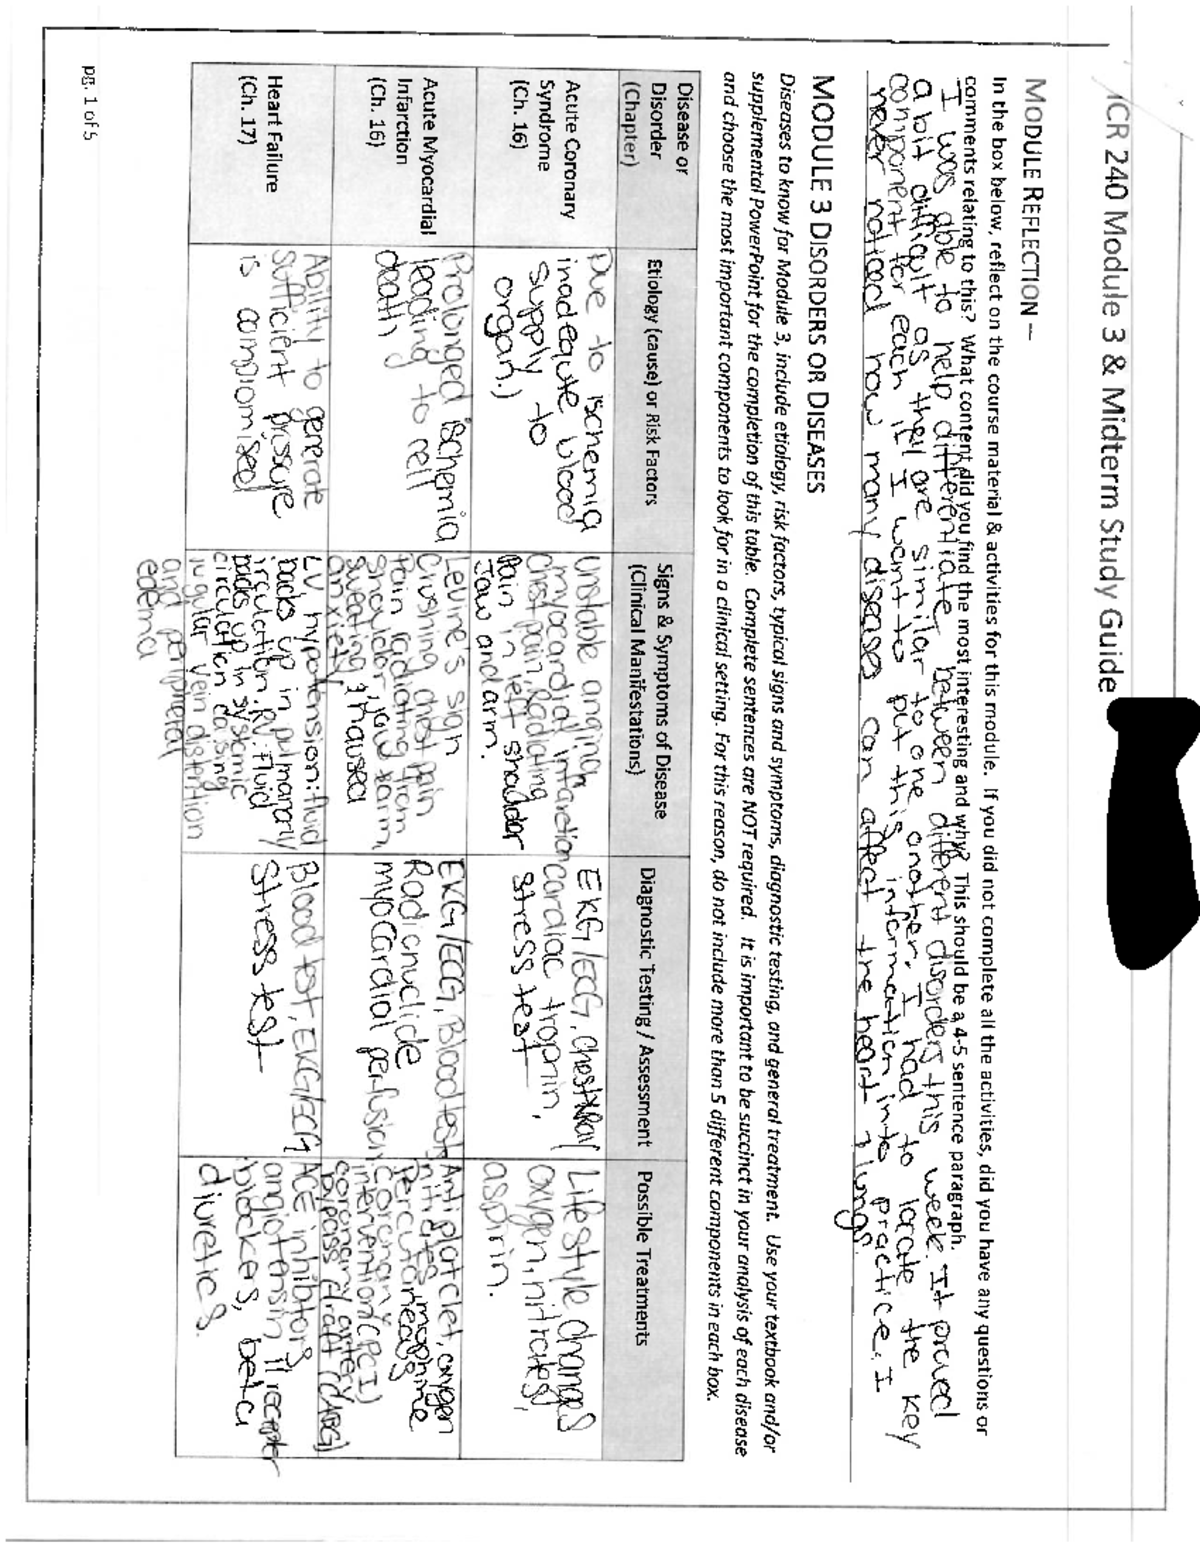 ICR 240 Module 3 & Midterm Study Guide
MODULE REFLECTION –
In the box below, reflect on the course material & activities for this module. If you did not complete all the activities, did you have any questions or
comments relating to this? What content did you find the most interesting and why? This should be a 4-5 sentence paragraph.
I was able to help differentiate between different disorders this week. It proved
a bit difficult as they are similar to one another. I had to locate the key
component for each if I want to put this information into practice. I
never noticed how many diseases can affect the heart & lungs.
MODULE 3 DISORDERS OR DISEASES
Diseases to know for Module 3, include etiology, risk factors, typical signs and symptoms, diagnostic testing, and general treatment. Use your textbook and/or
supplemental PowerPoint for the completion of this table. Complete sentences are NOT required. It is important to be succinct in your analysis of each disease
and choose the most important components to look for in a clinical setting. For this reason, do not include more than 5 different components in each box.
Disease or
Disorder
(Chapter)
Etiology (cause) or Risk Factors
Signs & Symptoms of Disease
(Clinical Manifestations)
Diagnostic Testing / Assessment
Possible Treatments
Acute Coronary
Syndrome
(Ch. 16)
Due to ischemia
inadequte blood
supply to
organ.)
unstable angina,
myocardial infarction
chest pain, radiating
pain in left shoulder
Jaw and arm.
EKG/ECG, chest xRay
cardiac tropnin,
stress test
Lifestyle changes
oxygen, nitrates,
aspirin.
Acute Myocardial
Infarction
(Ch. 16)
Prolonged ischemia
leading to cell
death
Levine's sign
Crushing chest pain
Pain radiating from
shoulder, jaw & arm,
sweating, & nausea
anxiety
EKG/ECG, Blood test
Radionuclide
myocardial perfusion
Antiplatelet, oxygen
nitrates, morphine
Percutaneous
coronary
intervention (PCI)
coronary artery
bypass graft (CABG)
Heart Failure
(Ch. 17)
Ability to generate
sufficient prissure
is compiomised
LV hypotension: fluid
backs up in pulmonary
circulation. RV: Fluid
backs up in systemic
circulation causing
jugular vein distention
and peripheral
edema
Blood test, EKG/ECG
Stress test
ACE inhibitors,
angiotensin II recepter
blockers, beta
diuretics.
pg. 1 of 5